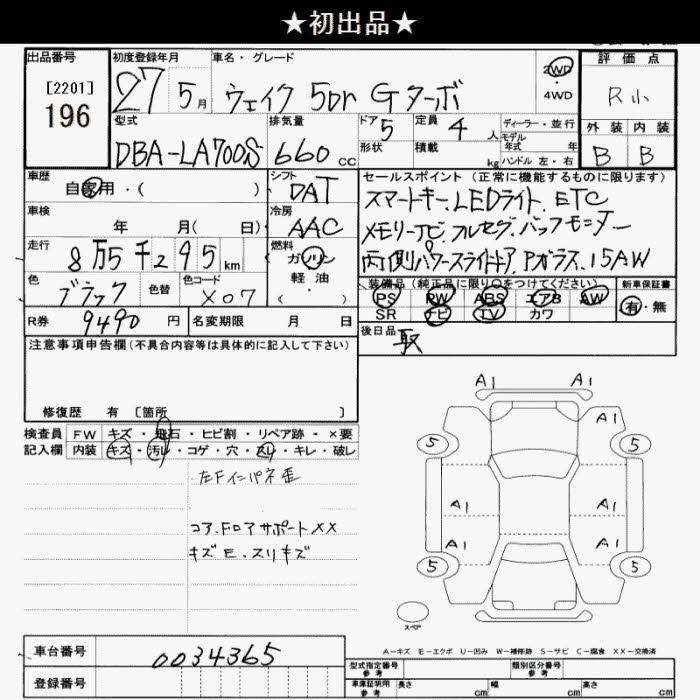 ★初出品★
出品番号 初度登録年月 車名・グレード 2WD 評価点
[2201] 27 5月 ウェイク 5Dr Gターボ ・4WD R小
196 型式 排気量 ドア 定員 ディーラー・並行 外装 内装
DBA-LA700S 660cc 5 4人 モデル年式 年 B B
形状 積載 kg ハンドル 左・右
車歴 自家用・( ) シフト DAT セールスポイント(正常に機能するものに限ります)
車検 年 月( 日) 冷房 AAC スマートキー.LEDライト.ETC
メモリーナビ.フルセグ.バックモニター
走行 8万5千295km 燃料 ガソリン 両側パワースライドドア.Pガラス.15AW
色 ブラック 色替 色コード X07 軽油 ( ・ ) 装備品(純正品に限り○をつけてください) 新車保証書
PS PW ABS エアB AW 有・無
R券 9490円 名変期限 月 日 SR ナビ TV カワ
後日品 取
注意事項申告欄(不具合内容等は具体的に記入して下さい)
修復歴 有 〔箇所 〕
A1 A1
検査員 FW キズ・飛石・ヒビ割・リペア跡・×要 A1
記入欄 内装 キズ・汚レ・コゲ・穴・スレ・キレ・破レ 5 5
左Fインパネ歪
A1 A1
コア.FロアサポートXX
キズE.スリキズ A1 A1
5 5
スペア
車台番号 0034365 A-キズ E-エクボ U-凹み W-補修跡 S-サビ C-腐食 XX-交換済
型式指定番号 参考 類別区分番号 参考
登録番号 車庫証明用 参考 長さ cm 幅 cm 高さ cm